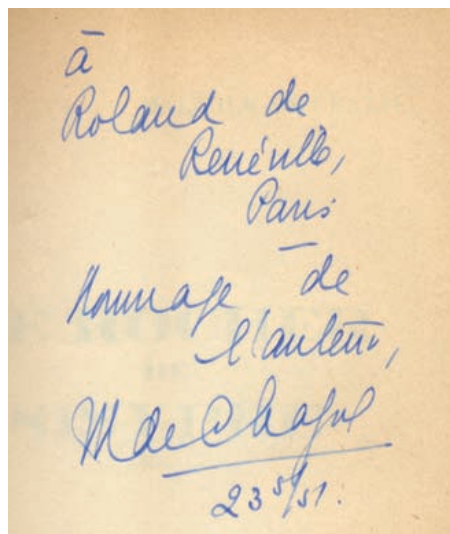 à
Roland de
Renéville,
Paris
Hommage de
l'auteur,
M de Chazal
23 5/51.